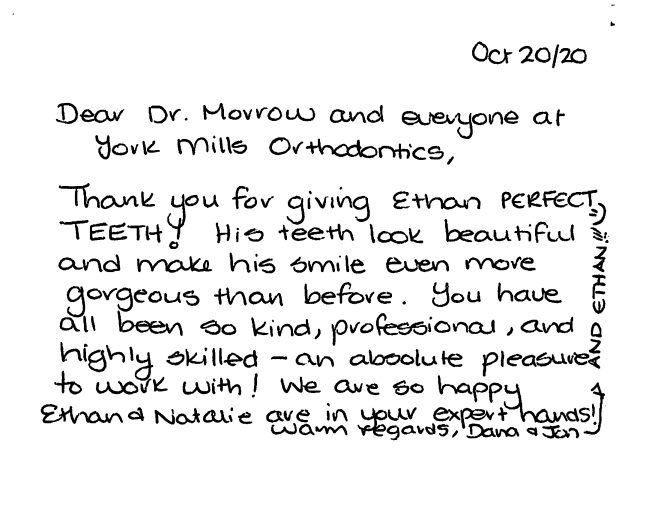 Oct 20/20
Dear Dr. Morrow and everyone at
York Mills Orthodontics,
Thank you for giving Ethan PERFECT
TEETH! His teeth look beautiful
and make his smile even more
gorgeous than before. You have
all been so kind, professional, and
highly skilled – an absolute pleasure
to work with! We are so happy
Ethan & Natalie are in your expert hands!
Warm regards, Dana & Jon
AND ETHAN!!! :)